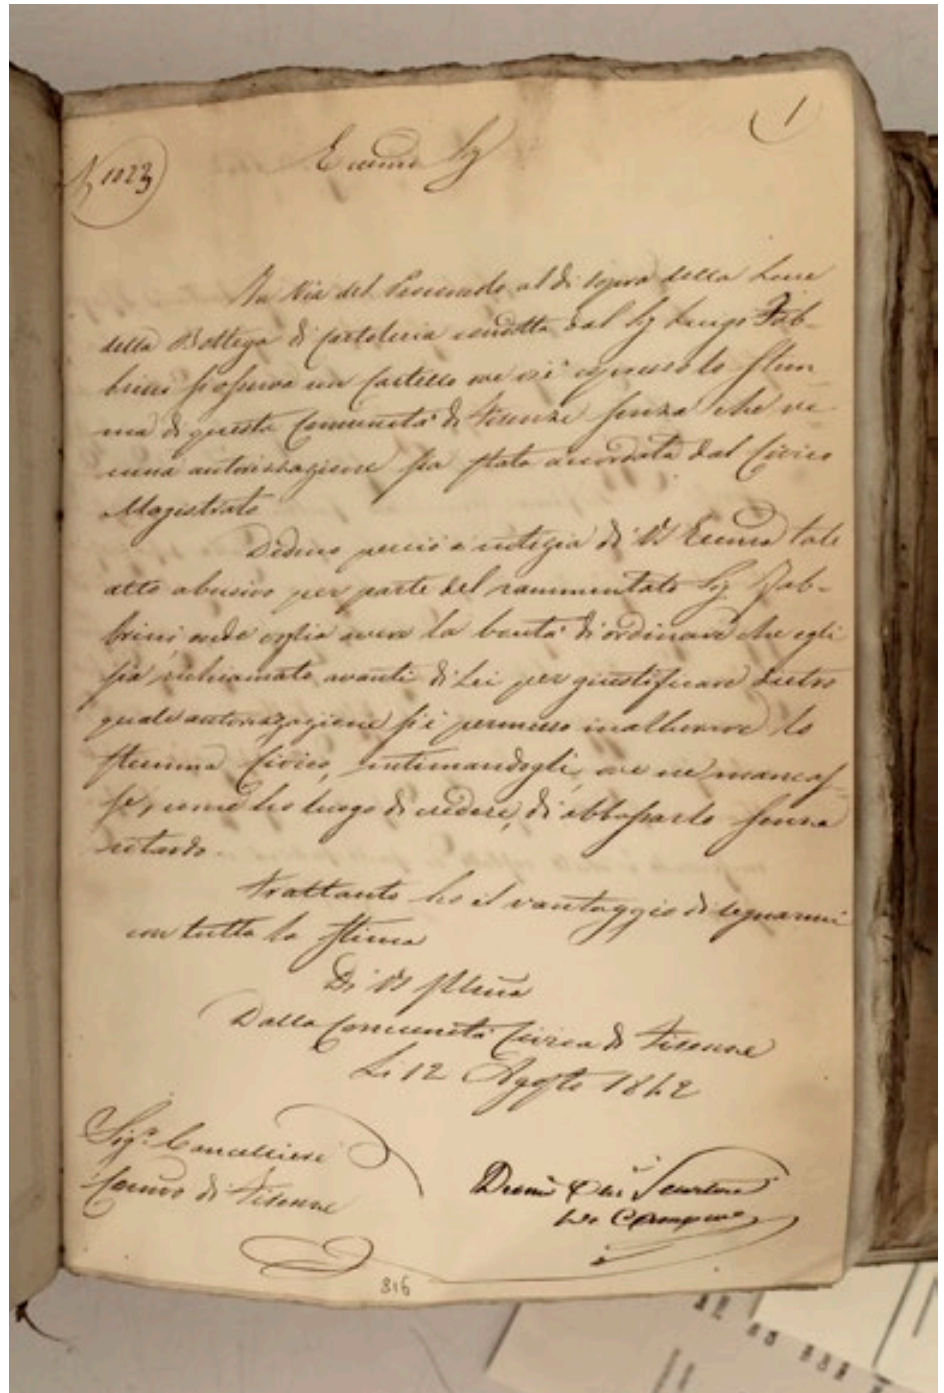 1
N 1023
Eccmo Sig
In Via del al di sopra della Luce
della Bottega di Cartoleria condotta dal Sig Luigi Fab-
brini si osserva un Cartello ove vi è espresso lo Stem
ma di questa Comunità di Firenze senza che ve
runa autorizzazione sia stata accordata dal Civico
Magistrato
Deduco perciò a notizia di VS Eccma tale
atto abusivo per parte del rammentato Sig Fab-
brini, onde voglia avere la bontà di ordinare che egli
sia richiamato avanti di Lei per giustificare dietro
quale autorizzazione si è permesso inalberare lo
Stemma Civico, intimandogli, ove ne mancas-
se, come ho luogo di credere, di abbassarlo senza
ritardo.
Frattanto ho il vantaggio di segnarmi
con tutta la Stima
Di VS
Dalla Comunità Civica di Firenze
Li 12 Agosto 1842
Sigr Cancelliere
di Firenze
Servitore
816